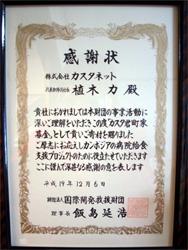 感謝状
株式会社カスタネット
代表取締役社長 植木力 殿
貴社におかれましては本財団の事業活動に
深いご理解をいただきこの度"カスタ君町家
募金"として貴いご寄付を賜りました
ご厚志にお応えしカンボジアの病院給食
支援プロジェクトのために役立たせていただきます
ここに謹んで深甚なる感謝の意を表します
平成19年12月6日
財団法人 国際開発救援財団
理事長 飯島延浩